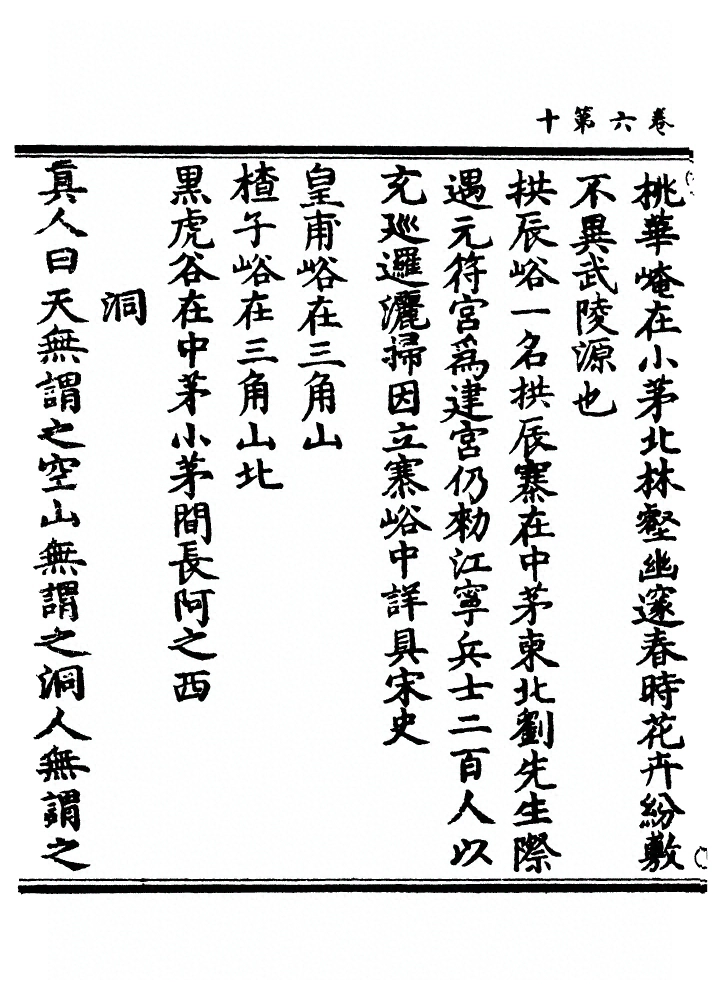 卷六第十
桃華崦在小茅北林壑幽邃春時花卉紛敷
不異武陵源也
拱辰峪一名拱辰寨在中茅東北劉先生際
遇元符宮爲建宮仍勑江寧兵士二百人以
充廵邏灑掃因立寨峪中詳具宋史
皇甫峪在三角山
楂子峪在三角山北
黑虎谷在中茅小茅間長阿之西
洞
真人曰天無謂之空山無謂之洞人無謂之